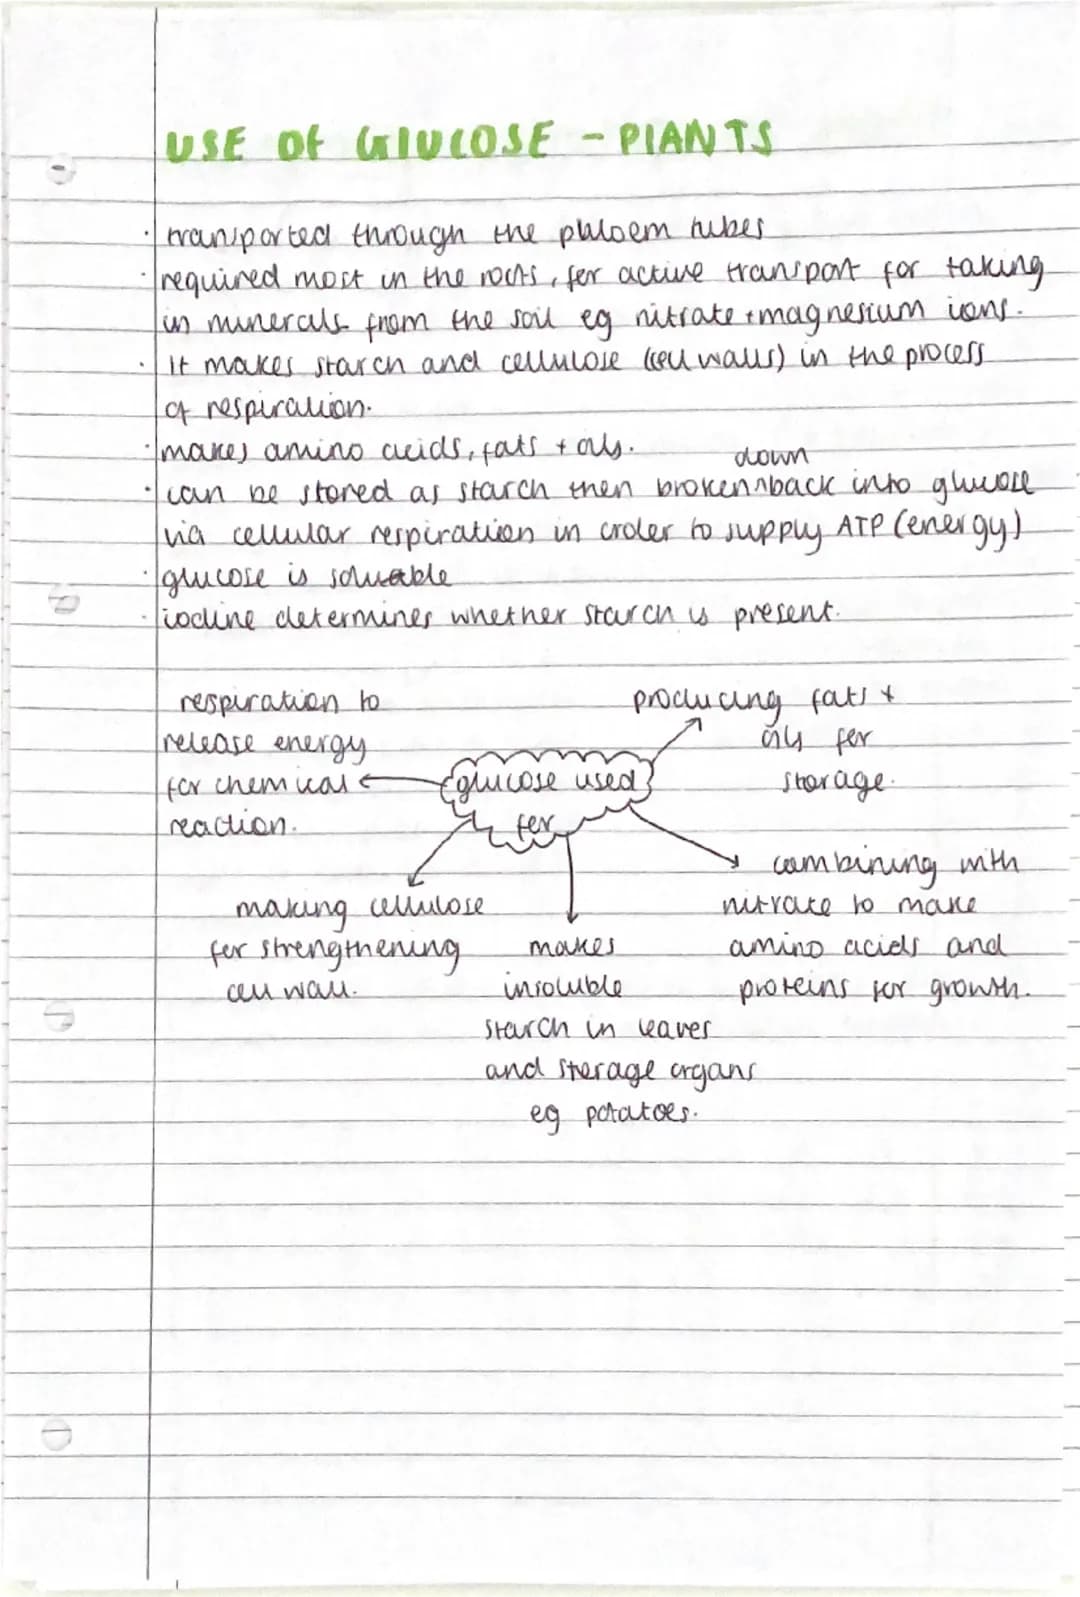 USE OF GlUCOSE - PlANTS
· transported through the phloem tubes
· required most in the roots, for active transport for taking
in minerals from the soil eg nitrate + magnesium ions.
· It makes starch and cellulose (cell walls) in the process
of respiration.
· makes amino acids, fats + oils.
down
· can be stored as starch then broken ^ back into glucose
via cellular respiration in order to supply ATP (energy)
· glucose is soluable
· iodine determines whether starch is present.
respiration to
release energy
for chemical
reaction.
producing fats +
oils for
storage.
glucose used
for
making cellulose
for strengthening
cell wall.
makes
insoluble
starch in leaves
and storage organs
eg potatoes.
combining with
nitrate to make
amino acids and
proteins for growth.